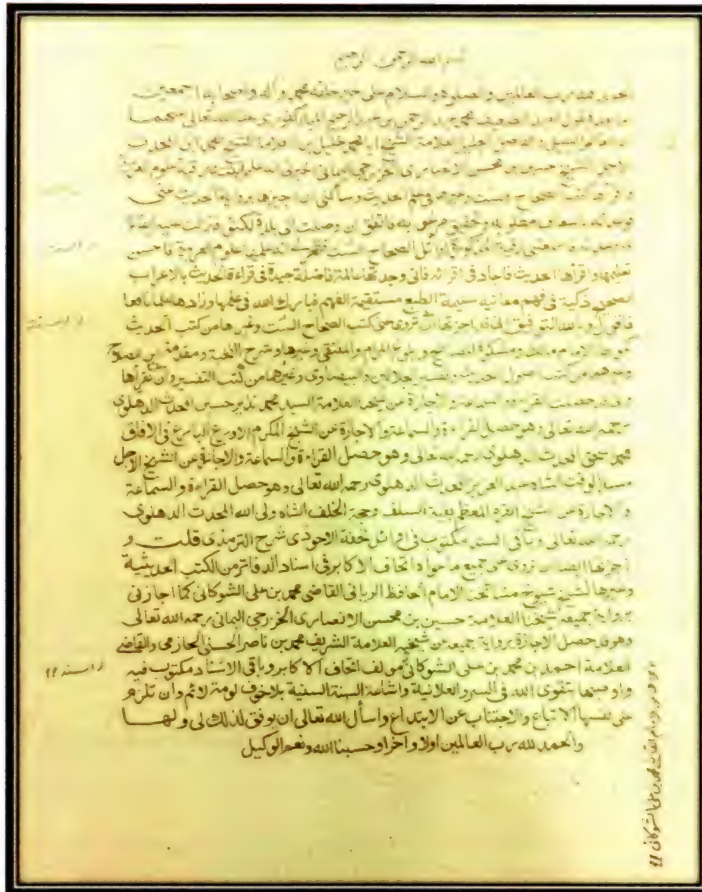 بسم الله الرحمن الرحيم
الحمد لله رب العالمين والصلوة والسلام على خير خلقه محمد وآله واصحابه اجمعين
اما بعد فيقول العبد الضعيف محمد عبد الرحمن بن عبد الرحيم المباركفوري عفا الله تعالى عنهما
العلامة الشيخ ابا محمد خليل بن العلامة الشيخ محمد ابن المحدث
الشيخ حسين بن محسن الانصاري الخزرجي اليماني اخبرني ان رقية علوم العربية
كتب الصحاح الست وغيرها في علم الحديث وسألني ان اجيزها برواية الحديث عني
فوعدته باسعاف مطلوبه وتحقيق مرغوبه فاتفق ان وصلت الى بلدة لكنئو فنزلت عنده
رقية المذكورة اوائل الصحاح الست فظهر لي انه علمها علوم العربية فاحسن
تعليمها واقرأها الحديث فاجاد في اقرائه فاني وجدتها عالمة فاضلة جيدة في قراءة الحديث بالاعراب
الصحيح ذكية في فهم معانيه سليمة الطبع مستقيمة الفهم فبارك الله في علمها وزادها علما نافعا
فاقول وبالله التوفيق اني قد اجزتها ان تروي عني كتب الصحاح الست وغيرها من كتب الحديث
كموطا الامام مالك ومشكوة المصابيح وبلوغ المرام والمنتقى وغيرها وشرح النخبة ومقدمة ابن الصلاح
وغيرهما من كتب اصول الحديث وتفسير الجلالين والبيضاوي وغيرها من كتب التفسير وان تقرأها
وقد حصلت القراءة والسماعة والاجازة عن شيخنا العلامة السيد محمد نذير حسين المحدث الدهلوي
رحمه الله تعالى وهو حصل القراءة والسماعة والاجازة عن الشيخ المكرم الاورع البارع في الآفاق
محمد اسحق المحدث الدهلوي رحمه الله تعالى وهو حصل القراءة والسماعة والاجازة عن الشيخ الاجل
مسند الوقت الشاه عبد العزيز المحدث الدهلوي رحمه الله تعالى وهو حصل القراءة والسماعة
والاجازة عن الشيخ القرم المعظم بقية السلف وحجة الخلف الشاه ولي الله المحدث الدهلوي
رحمه الله تعالى وباقي السند مكتوب في اوائل تحفة الاحوذي شرح الترمذي قلت و
اجزتها ايضا ان تروي عني جميع ما حواه اتحاف الاكابر في اسناد الدفاتر من الكتب الحديثية
وغيرها لشيخ شيوخ مشائخنا الامام الحافظ الرباني القاضي محمد بن علي الشوكاني كما اجازني
برواية جميعه شيخنا العلامة حسين بن محسن الانصاري الخزرجي اليماني رحمه الله تعالى
وهو قد حصل الاجازة برواية جميعه عن شيخيه العلامة الشريف محمد بن ناصر الحسني الحازمي والقاضي
العلامة احمد بن محمد بن علي الشوكاني مولف اتحاف الاكابر وباقي الاسناد مكتوب فيه
واوصيها بتقوى الله في السر والعلانية واشاعة السنة السنية بلا خوف لومة لائم وان تلزم
على نفسها الاتباع والاجتناب عن الابتداع واسأل الله تعالى ان يوفق لذلك لي ولها
والحمد لله رب العالمين اولا وآخرا وحسبنا الله ونعم الوكيل